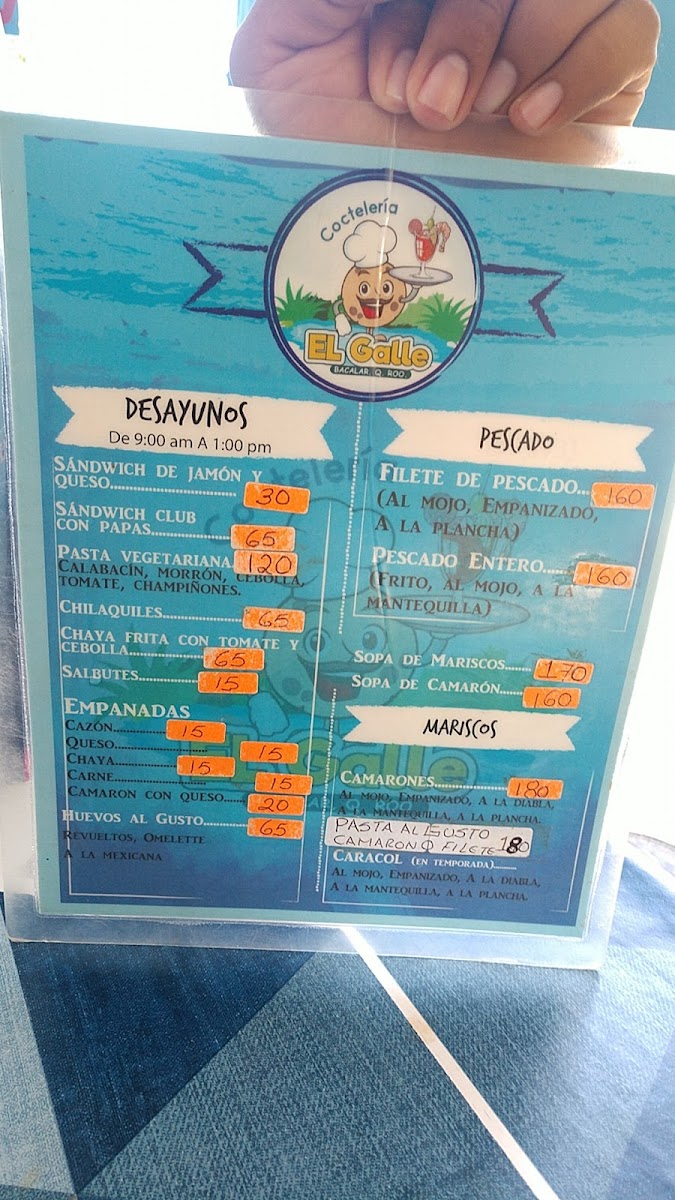 Coctelería
EL Galle
BACALAR, Q. ROO.
DESAYUNOS
De 9:00 am A 1:00 pm
SÁNDWICH DE JAMÓN Y
QUESO.......................... 30
SÁNDWICH CLUB
CON PAPAS................ 65
PASTA VEGETARIANA. 120
CALABACÍN, MORRÓN, CEBOLLA,
TOMATE, CHAMPIÑONES.
CHILAQUILES................. 65
CHAYA FRITA CON TOMATE Y
CEBOLLA............... 65
SALBUTES................ 15
EMPANADAS
CAZÓN................ 15
QUESO........................ 15
CHAYA............ 15
CARNE........................ 15
CAMARON CON QUESO..... 20
HUEVOS AL GUSTO......... 65
REVUELTOS, OMELETTE
A LA MEXICANA
PESCADO
FILETE DE PESCADO... 160
(AL MOJO, EMPANIZADO,
A LA PLANCHA)
PESCADO ENTERO...... 160
(FRITO, AL MOJO, A LA
MANTEQUILLA)
SOPA DE MARISCOS....... 170
SOPA DE CAMARÓN...... 160
MARISCOS
CAMARONES................ 180
AL MOJO, EMPANIZADO, A LA DIABLA,
A LA MANTEQUILLA, A LA PLANCHA.
PASTA AL GUSTO
CAMARON O FILETE 180
CARACOL (EN TEMPORADA)..........
AL MOJO, EMPANIZADO, A LA DIABLA,
A LA MANTEQUILLA, A LA PLANCHA.